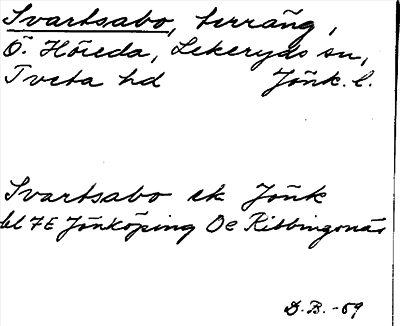 Svartsabo, terräng,
Ö. Höreda, Lekeryds sn,
Tveta hd Jönk. l.
Svartsabo ek Jönk
bl 7E Jönköping Oe Ribbingsnäs
D.B. -69